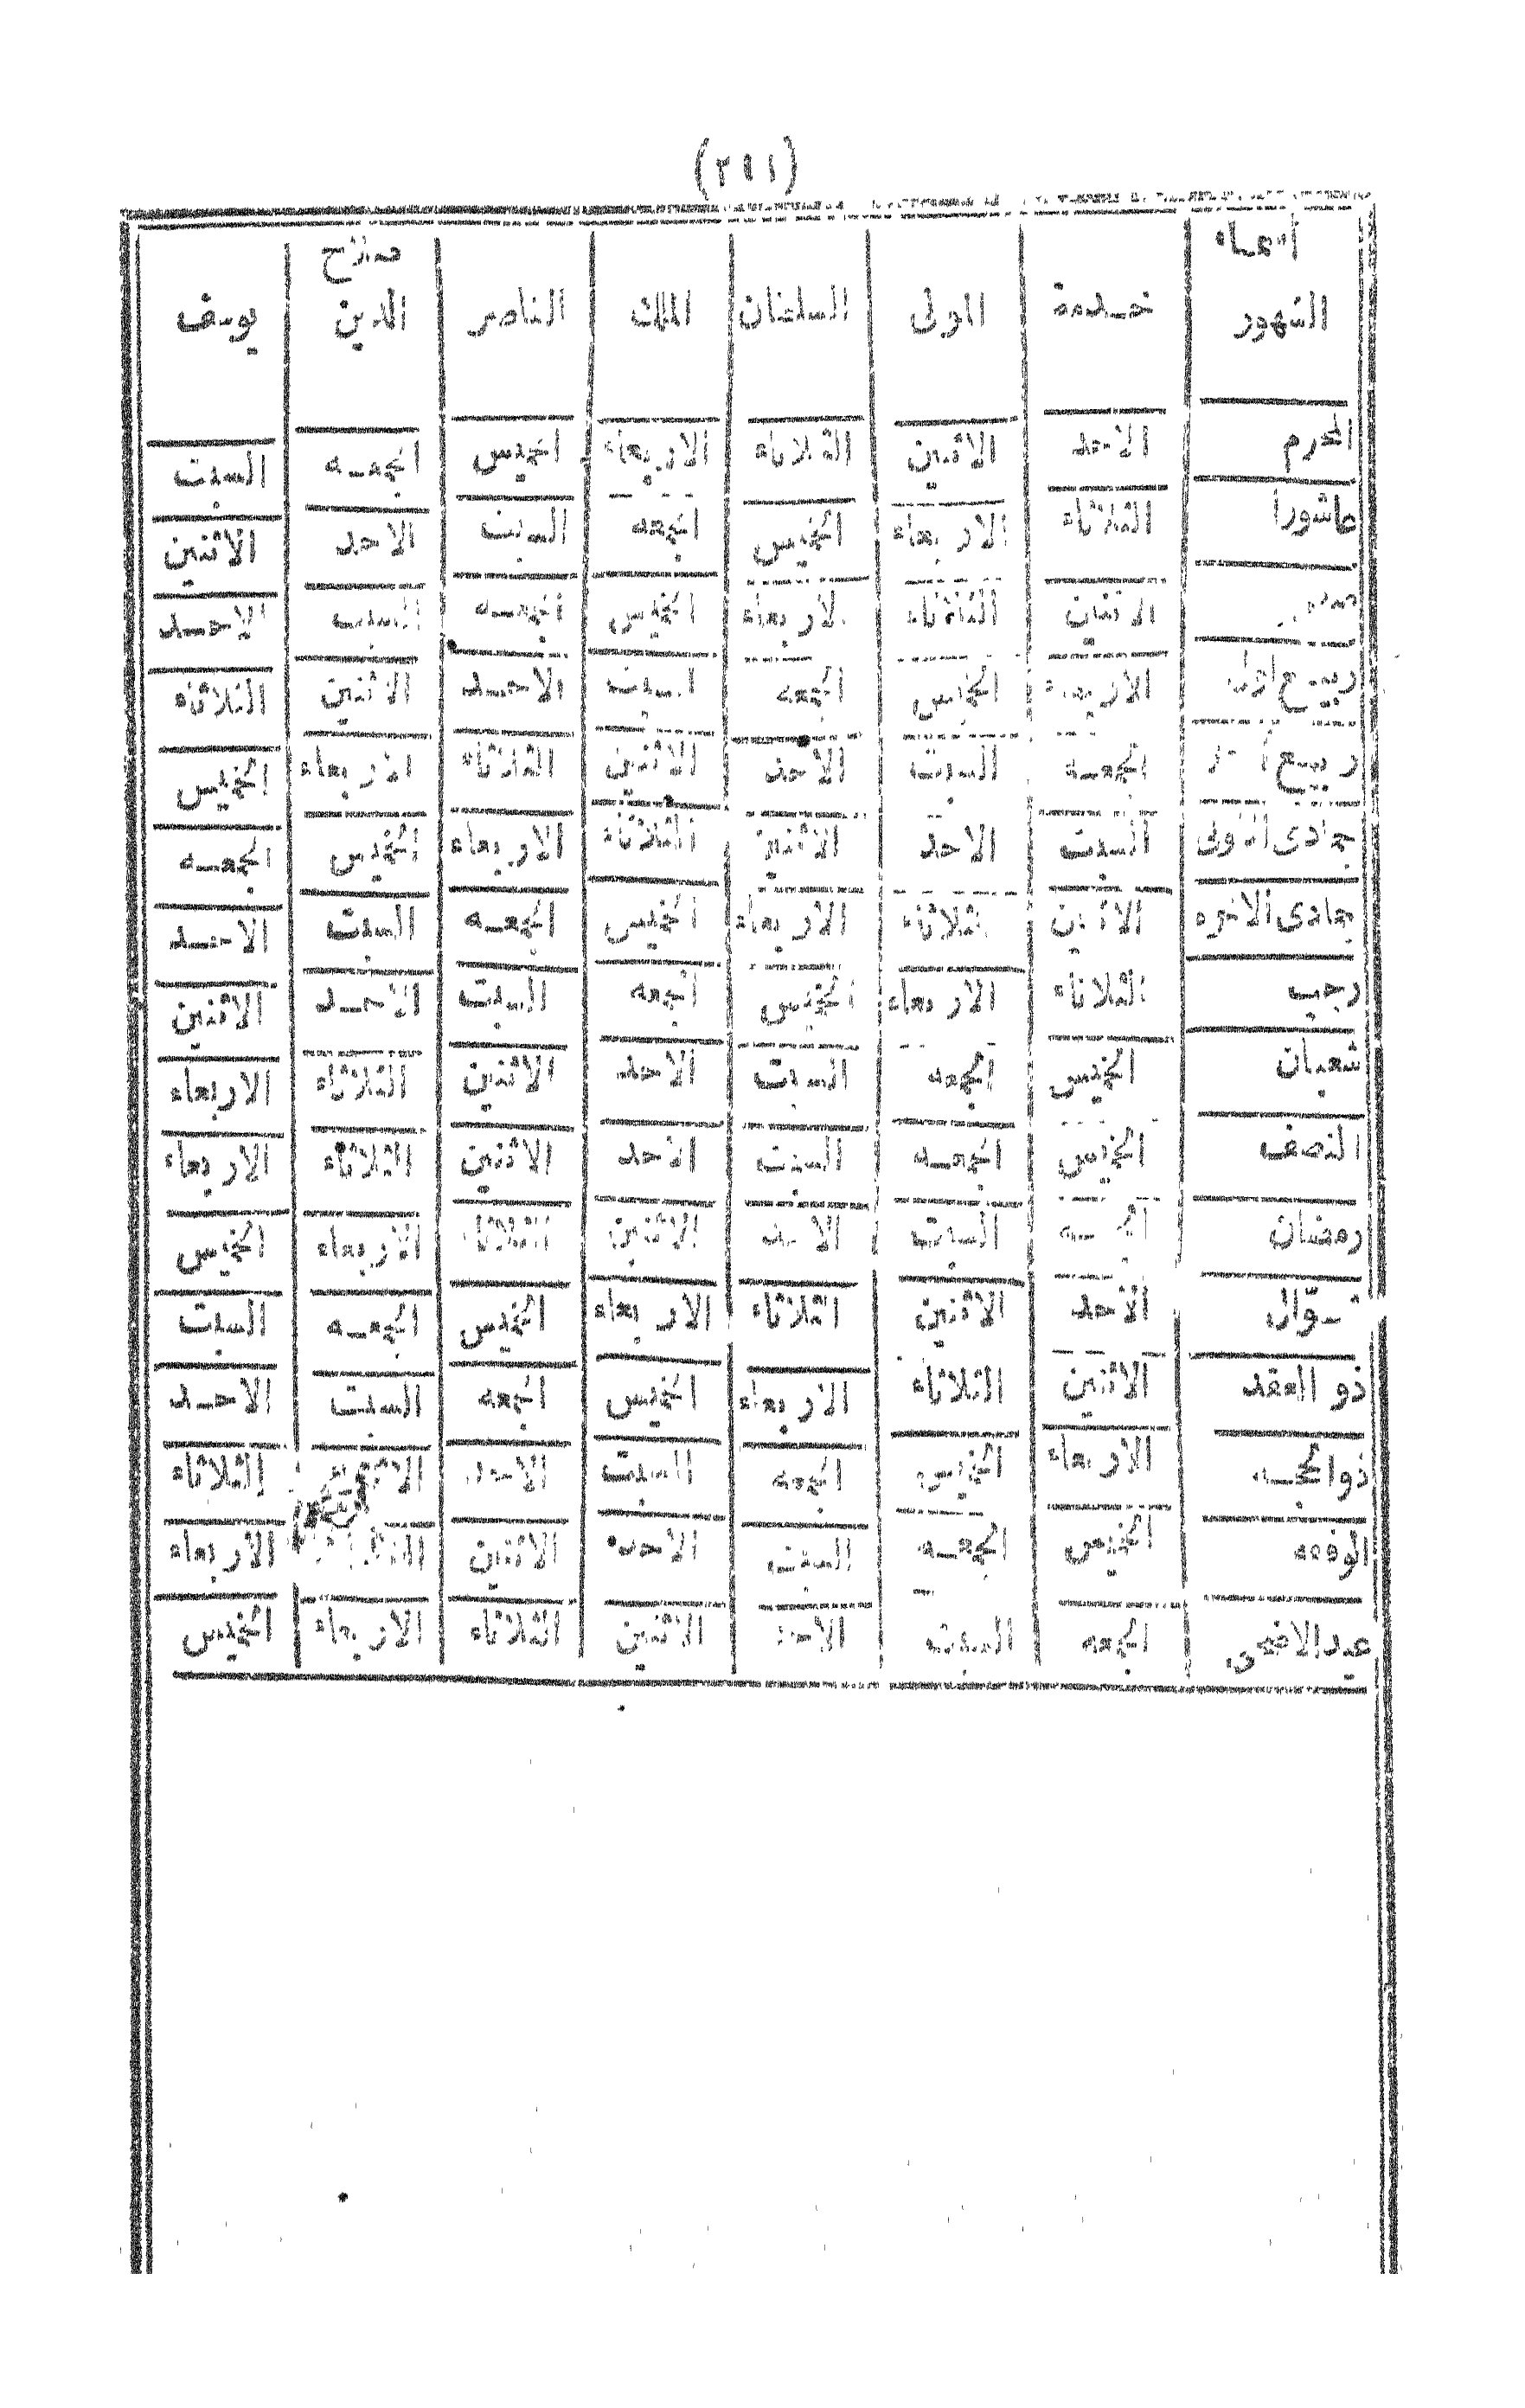 (٢١١)
اسماء الشهور خدمة المولى السلطان الملك الناصر صلاح الدين يوسف
المحرم الاحد الاثنين الثلاثاء الاربعاء الخميس الجمعه السبت
عاشورا الثلاثاء الاربعاء الخميس الجمعه السبت الاحد الاثنين
الاثنين الثلاثاء الاربعاء الخميس الجمعه السبت الاحد
ربيع الاول الاربعاء الخميس الجمعه السبت الاحد الاثنين الثلاثاء
ربيع الجمعه السبت الاحد الاثنين الثلاثاء الاربعاء الخميس
جمادى الاولى السبت الاحد الاثنين الثلاثاء الاربعاء الخميس الجمعه
جمادى الاخره الاثنين الثلاثاء الاربعاء الخميس الجمعه السبت الاحد
رجب الثلاثاء الاربعاء الخميس الجمعه السبت الاحد الاثنين
شعبان الخميس الجمعه السبت الاحد الاثنين الثلاثاء الاربعاء
النصف الخميس الجمعه السبت الاحد الاثنين الثلاثاء الاربعاء
رمضان الجمعه السبت الاحد الاثنين الثلاثاء الاربعاء الخميس
شوّال الاحد الاثنين الثلاثاء الاربعاء الخميس الجمعه السبت
ذو العقد الاثنين الثلاثاء الاربعاء الخميس الجمعه السبت الاحد
ذوالحجه الاربعاء الخميس الجمعه السبت الاحد الاثنين الثلاثاء
الوقفه الخميس الجمعه السبت الاحد الاثنين الثلاثاء الاربعاء
عيدالاضحى الجمعه السبت الاحد الاثنين الثلاثاء الاربعاء الخميس